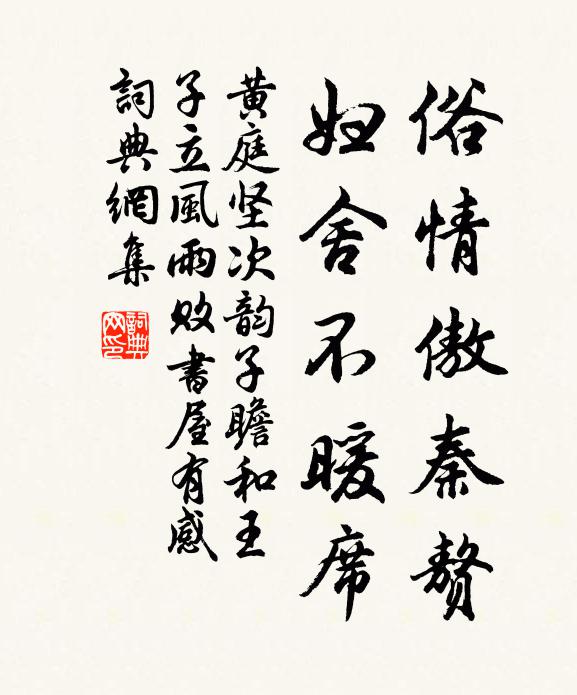 俗情傲秦贅
妇舍不暖席
黄庭坚次韵子瞻和王
子立風雨败書屋有感
詞典網集
詞典網印